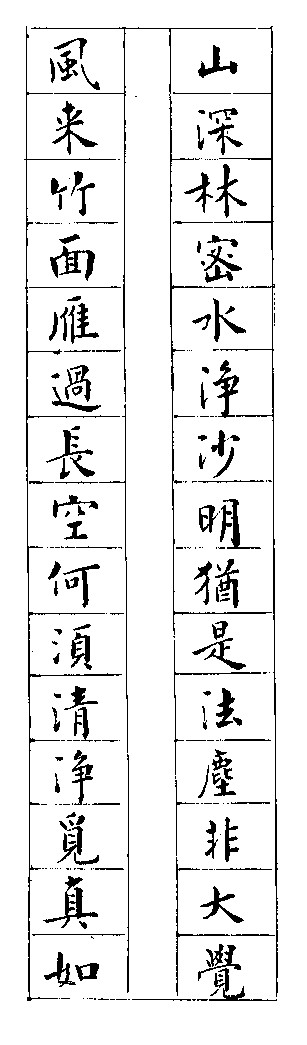 山深林密水浄沙明猶是法塵非大覺
風来竹面雁過長空何須清浄覓真如